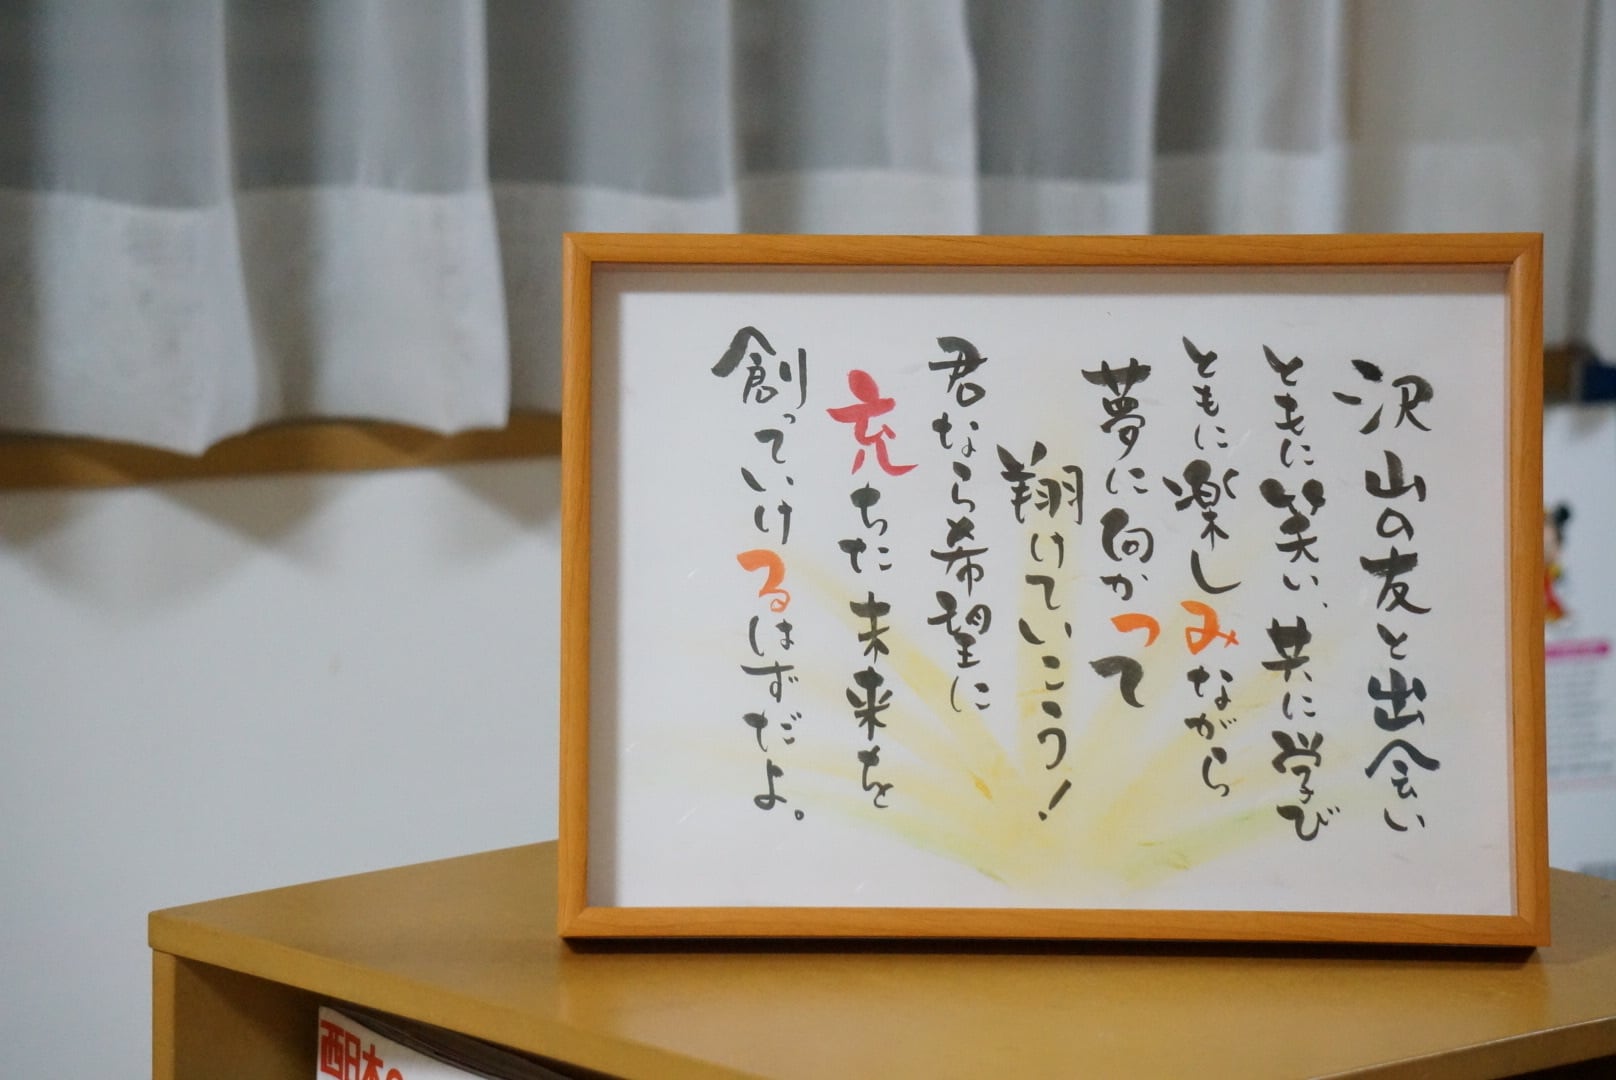 沢山の友と出会い
ともに笑い、共に学び
ともに楽しみながら
夢に向かって
翔けていこう!
君なら希望に
充ちた未来を
創っていけるはずだよ。
西日本の